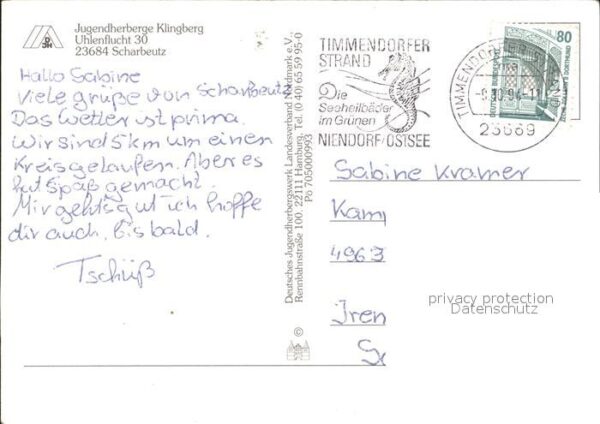 Jugendherberge Klingberg
Uhlenflucht 30
23684 Scharbeutz
DJH
Hallo Sabine
Viele grüße von Scharbeutz
Das Wetter ist prima.
Wir sind 5 km um einen
Kreis gelaufen. Aber es
hat Spaß gemacht.
Mir gehts gut ich hoffe
dir auch. bis bald.
Tschüß
Deutsches Jugendherbergswerk Landesverband Nordmark e.V.,
Rennbahnstraße 100, 22111 Hamburg, Tel. (0 40) 65 59 95-0
Pö 705000993
©
TIMMENDORFER
STRAND
Die
Seeheilbäder
im Grünen
NIENDORF/OSTSEE
TIMMENDORFER
94-11
23669
80
DEUTSCHE BUNDESPOST
Sabine Kramer
Kam
4963
Iren
privacy protection
Datenschutz